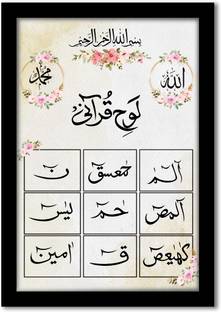 بسم الله الرحمن الرحيم
الله
محمد
لوح قرآنی
آلم حمعسق ن
آلمص حم يس
كهيعص ق امين